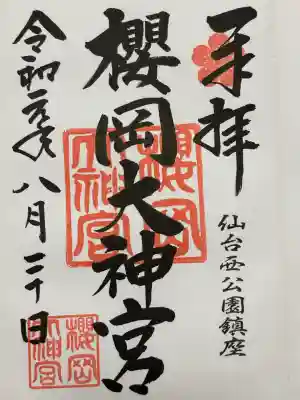 奉拝
仙台西公園鎮座
櫻岡大神宮
令和元年八月二十日
櫻岡
大神宮
櫻岡
大神宮